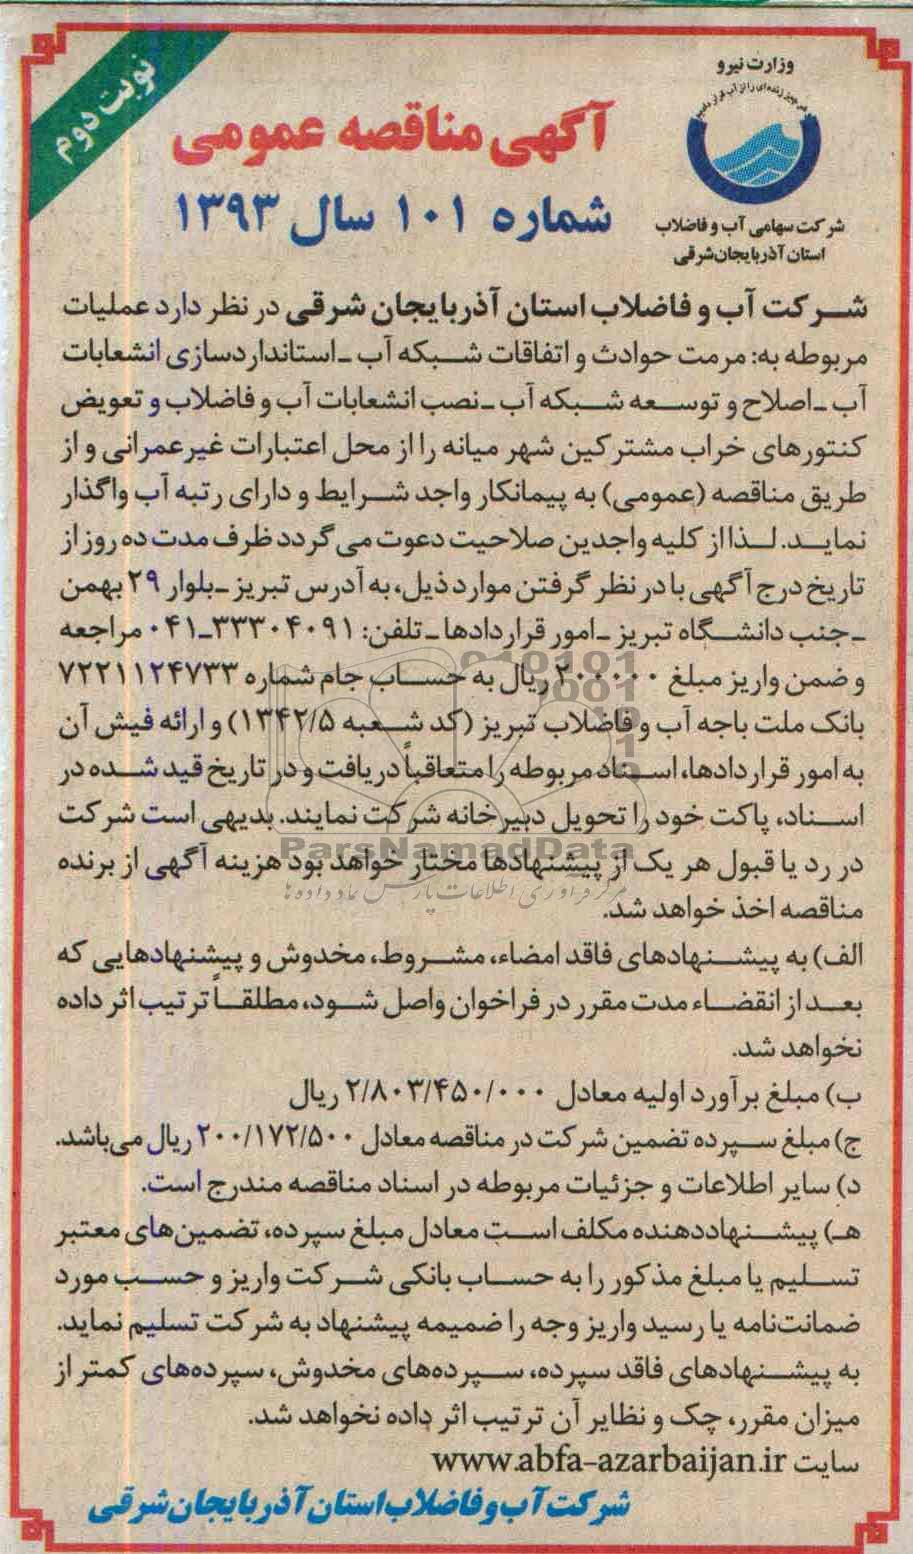 وزارت نیرو
شرکت سهامی آب و فاضلاب
استان آذربایجان‌شرقی
نوبت دوم
آگهی مناقصه عمومی
شماره ۱۰۱ سال ۱۳۹۳
شرکت آب و فاضلاب استان آذربایجان شرقی در نظر دارد عملیات
مربوطه به: مرمت حوادث و اتفاقات شبکه آب ـ استانداردسازی انشعابات
آب ـ اصلاح و توسعه شبکه آب ـ نصب انشعابات آب و فاضلاب و تعویض
کنتورهای خراب مشترکین شهر میانه را از محل اعتبارات غیرعمرانی و از
طریق مناقصه (عمومی) به پیمانکار واجد شرایط و دارای رتبه آب واگذار
نماید. لذا از کلیه واجدین صلاحیت دعوت می گردد ظرف مدت ده روز از
تاریخ درج آگهی با در نظر گرفتن موارد ذیل، به آدرس تبریز ـ بلوار ۲۹ بهمن
ـ جنب دانشگاه تبریز ـ امور قراردادها ـ تلفن: ۳۳۳۰۴۰۹۱ـ۰۴۱ مراجعه
و ضمن واریز مبلغ ۲۰۰۰۰۰ ریال به حساب جام شماره ۷۲۲۱۱۲۴۷۳۳
بانک ملت باجه آب و فاضلاب تبریز (کد شعبه ۱۳۴۲/۵) و ارائه فیش آن
به امور قراردادها، اسناد مربوطه را متعاقباً دریافت و در تاریخ قید شده در
اسناد، پاکت خود را تحویل دبیرخانه شرکت نمایند. بدیهی است شرکت
در رد یا قبول هر یک از پیشنهادها مختار خواهد بود هزینه آگهی از برنده
مناقصه اخذ خواهد شد.
الف) به پیشنهادهای فاقد امضاء، مشروط، مخدوش و پیشنهادهایی که
بعد از انقضاء مدت مقرر در فراخوان واصل شود، مطلقاً ترتیب اثر داده
نخواهد شد.
ب) مبلغ برآورد اولیه معادل ۲/۸۰۳/۴۵۰/۰۰۰ ریال
ج) مبلغ سپرده تضمین شرکت در مناقصه معادل ۲۰۰/۱۷۲/۵۰۰ ریال می‌باشد.
د) سایر اطلاعات و جزئیات مربوطه در اسناد مناقصه مندرج است.
هـ) پیشنهاددهنده مکلف است معادل مبلغ سپرده، تضمین‌های معتبر
تسلیم یا مبلغ مذکور را به حساب بانکی شرکت واریز و حسب مورد
ضمانت‌نامه یا رسید واریز وجه را ضمیمه پیشنهاد به شرکت تسلیم نماید.
به پیشنهادهای فاقد سپرده، سپرده‌های مخدوش، سپرده‌های کمتر از
میزان مقرر، چک و نظایر آن ترتیب اثر داده نخواهد شد.
سایت www.abfa-azarbaijan.ir
شرکت آب و فاضلاب استان آذربایجان شرقی
ParsNamadData
مرکز فرآوری اطلاعات پارس نماد داده ها